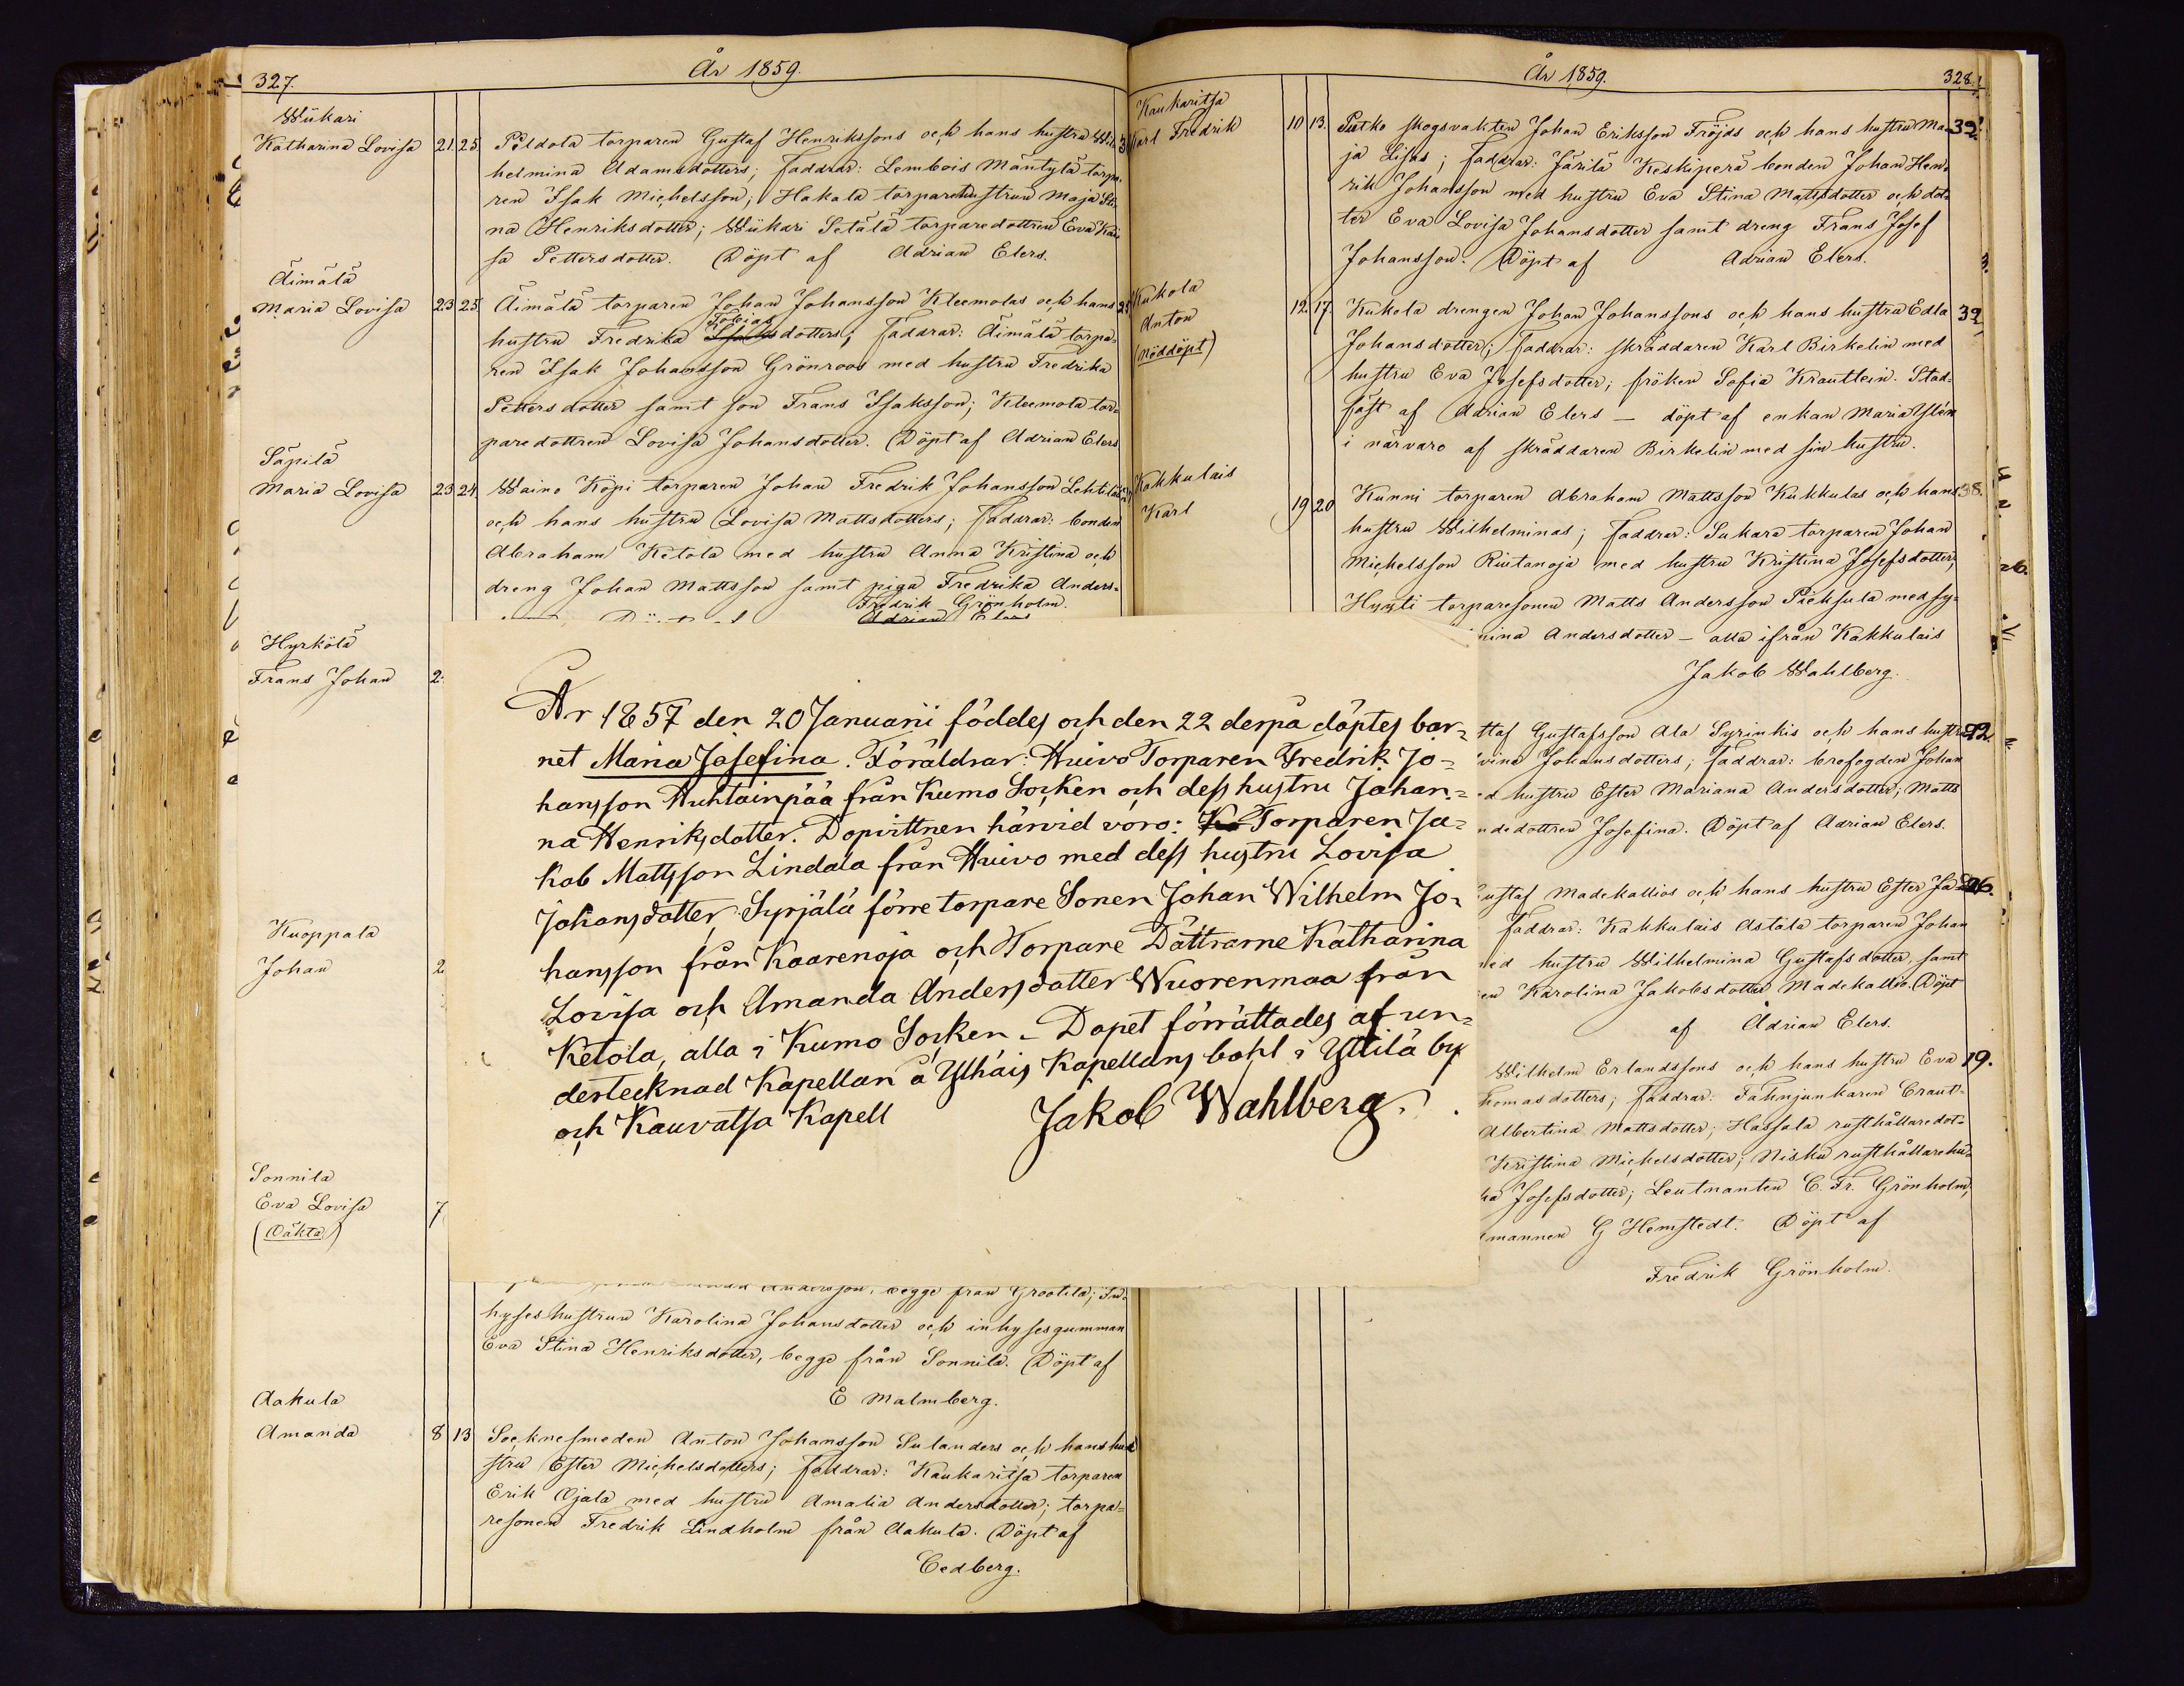 327.
År 1859.
Wiikari
Katharina Lovisa 21. 25. Peldola torparen Gustaf Henrikssons och hans hustru Wil= 3
helmina Adamsdotters; Faddrar: Lembois Mäntylä torpa-
ren Isak Michelsson; Hakala torparehustrun Maja Sti-
na Henriksdotter; Wiikari Setälä torparedottren Eva Kai
sa Pettersdotter. Döpt af Adrian Elers.
Äimälä
Maria Lovisa 23 25. Äimälä torparen Johan Johansson Kleemolas och hans 25
Tobias
hustru Fredrika dotters; Faddrar: Äimälä torpa-
ren Isak Johansson Grönroos med hustru Fredrika
Pettersdotter samt son Frans Isaksson; Kleemola tor=
paredottren Lovisa Johansdotter. Döpt af Adrian Elers
Säpilä
Maria Lovisa 23 24. Waino Köpi torparen Johan Fredrik Johansson Lehtiläs
och hans hustru Lovisa Mattsdotters; Faddrar: bonden
Abraham Ketola med hustru Anna Kristina och
dreng Johan Mattsson samt piga Fredrika Anders-
Fredrik Grönholm.
Adrian Elers
Hyrkölä
Frans Johan 2
Kuoppala
Johan 2
Sonnila
Eva Lovisa 7
(Oäkta)
Andersson, begge från Grootila; In-
hyseshustrun Karolina Johansdotter och inhysesgumman
Eva Stina Henriksdotter, begge från Sonnila. Döpt af
E Malmberg.
Aakula
Amanda 8 13 Socknesmeden Anton Johansson Sulanders och hans hu-
stru Ester Michelsdotters; Faddrar: Kaukaritsa torparen
Erik Ojala med hustru Amalia Andersdotter; torpa=
resonen Fredrik Lindholm från Aakula. Döpt af
Cedberg.
År 1857 den 20 Januarii föddes och den 22 derpå döptes bar=
net Maria Josefina. Föräldrar: Huivo Torparen Fredrik Jo=
hansson Huhtainpää från Kumo Socken och dess hustru Johan=
na Henriksdotter. Dopvittnen härvid voro: Ko Torparen Ja=
kob Mattsson Lindala från Huivo med dess hustru Lovisa
Johansdotter, Syrjälä förre torpare Sonen Johan Wilhelm Jo=
hansson från Kaarenoja och Torpare Döttrarne Katharina
Lovisa och Amanda Andersdotter Wuorenmaa från
Ketola, alla i Kumo Socken – Dopet förrättades af un=
dertecknad Kapellan å Ylhäis Kapellans bohl i Yttilä by
och Kauvatsa Kapell Jakob Wahlberg.
År 1859. 328.
Kaukaritsa
Karl Fredrik 10 13. Putko skogsvakten Johan Eriksson Fröjds och hans hustru Ma= 32
ja Lisas; Faddrar: Järilä Keskiperä bonden Johan Hen-
rik Johansson med hustru Eva Stina Mattsdotter och dot-
ter Eva Lovisa Johansdotter samt dreng Frans Josef
Johansson. Döpt af Adrian Elers.
Kukola
Anton 12. 17. Kukola drengen Johan Johanssons och hans hustru Edla 32
(Nöddöpt) Johansdotter; Faddrar: skräddaren Karl Birkelin med
hustru Eva Josefsdotter; fröken Sofia Krautlein. Stad=
fäst af Adrian Elers – döpt af enkan Maria Ylén
i närvaro af skräddaren Birkelin med sin hustru.
Kakkulais
Karl 19 20 Kunni torparen Abraham Mattsson Kukkulas och hans 38.
hustru Wilhelminas; Faddrar: Sukara torparen Johan
Michelsson Riutanoja med hustru Kristina Josefsdotter;
Hyyti torparesonen Matts Andersson Pieksula med sy-
mina Andersdotter – alla ifrån Kakkulais
Jakob Wahlberg.
ttaf Gustafsson Ala Syrinkis och hans hustru 22.
vina Johansdotters; Faddrar: brofogden Johan
d hustru Ester Mariana Andersdotter; Matts
ndedottren Josefina. Döpt af Adrian Elers.
Gustaf Madekallios och hans hustru Ester Ja 26.
Faddrar: Kakkulais Astala torparen Johan
med hustru Wilhelmina Gustafsdotter, samt
en Karolina Jakobsdotter Madekallio. Döpt
af Adrian Elers.
Wilhelm Erlandssons och hans hustru Eva 19.
homasdotters; Faddrar: Fahnjunkaren Craut-
Albertina Mattsdotter; Hassala rusthållaredot=
Kristina Michelsdotter; Nisku rusthållarehu=
ka Josefsdotter; Leutnanten C. Fr. Grönholm,
mannen G Hemstedt. Döpt af
Fredrik Grönholm.